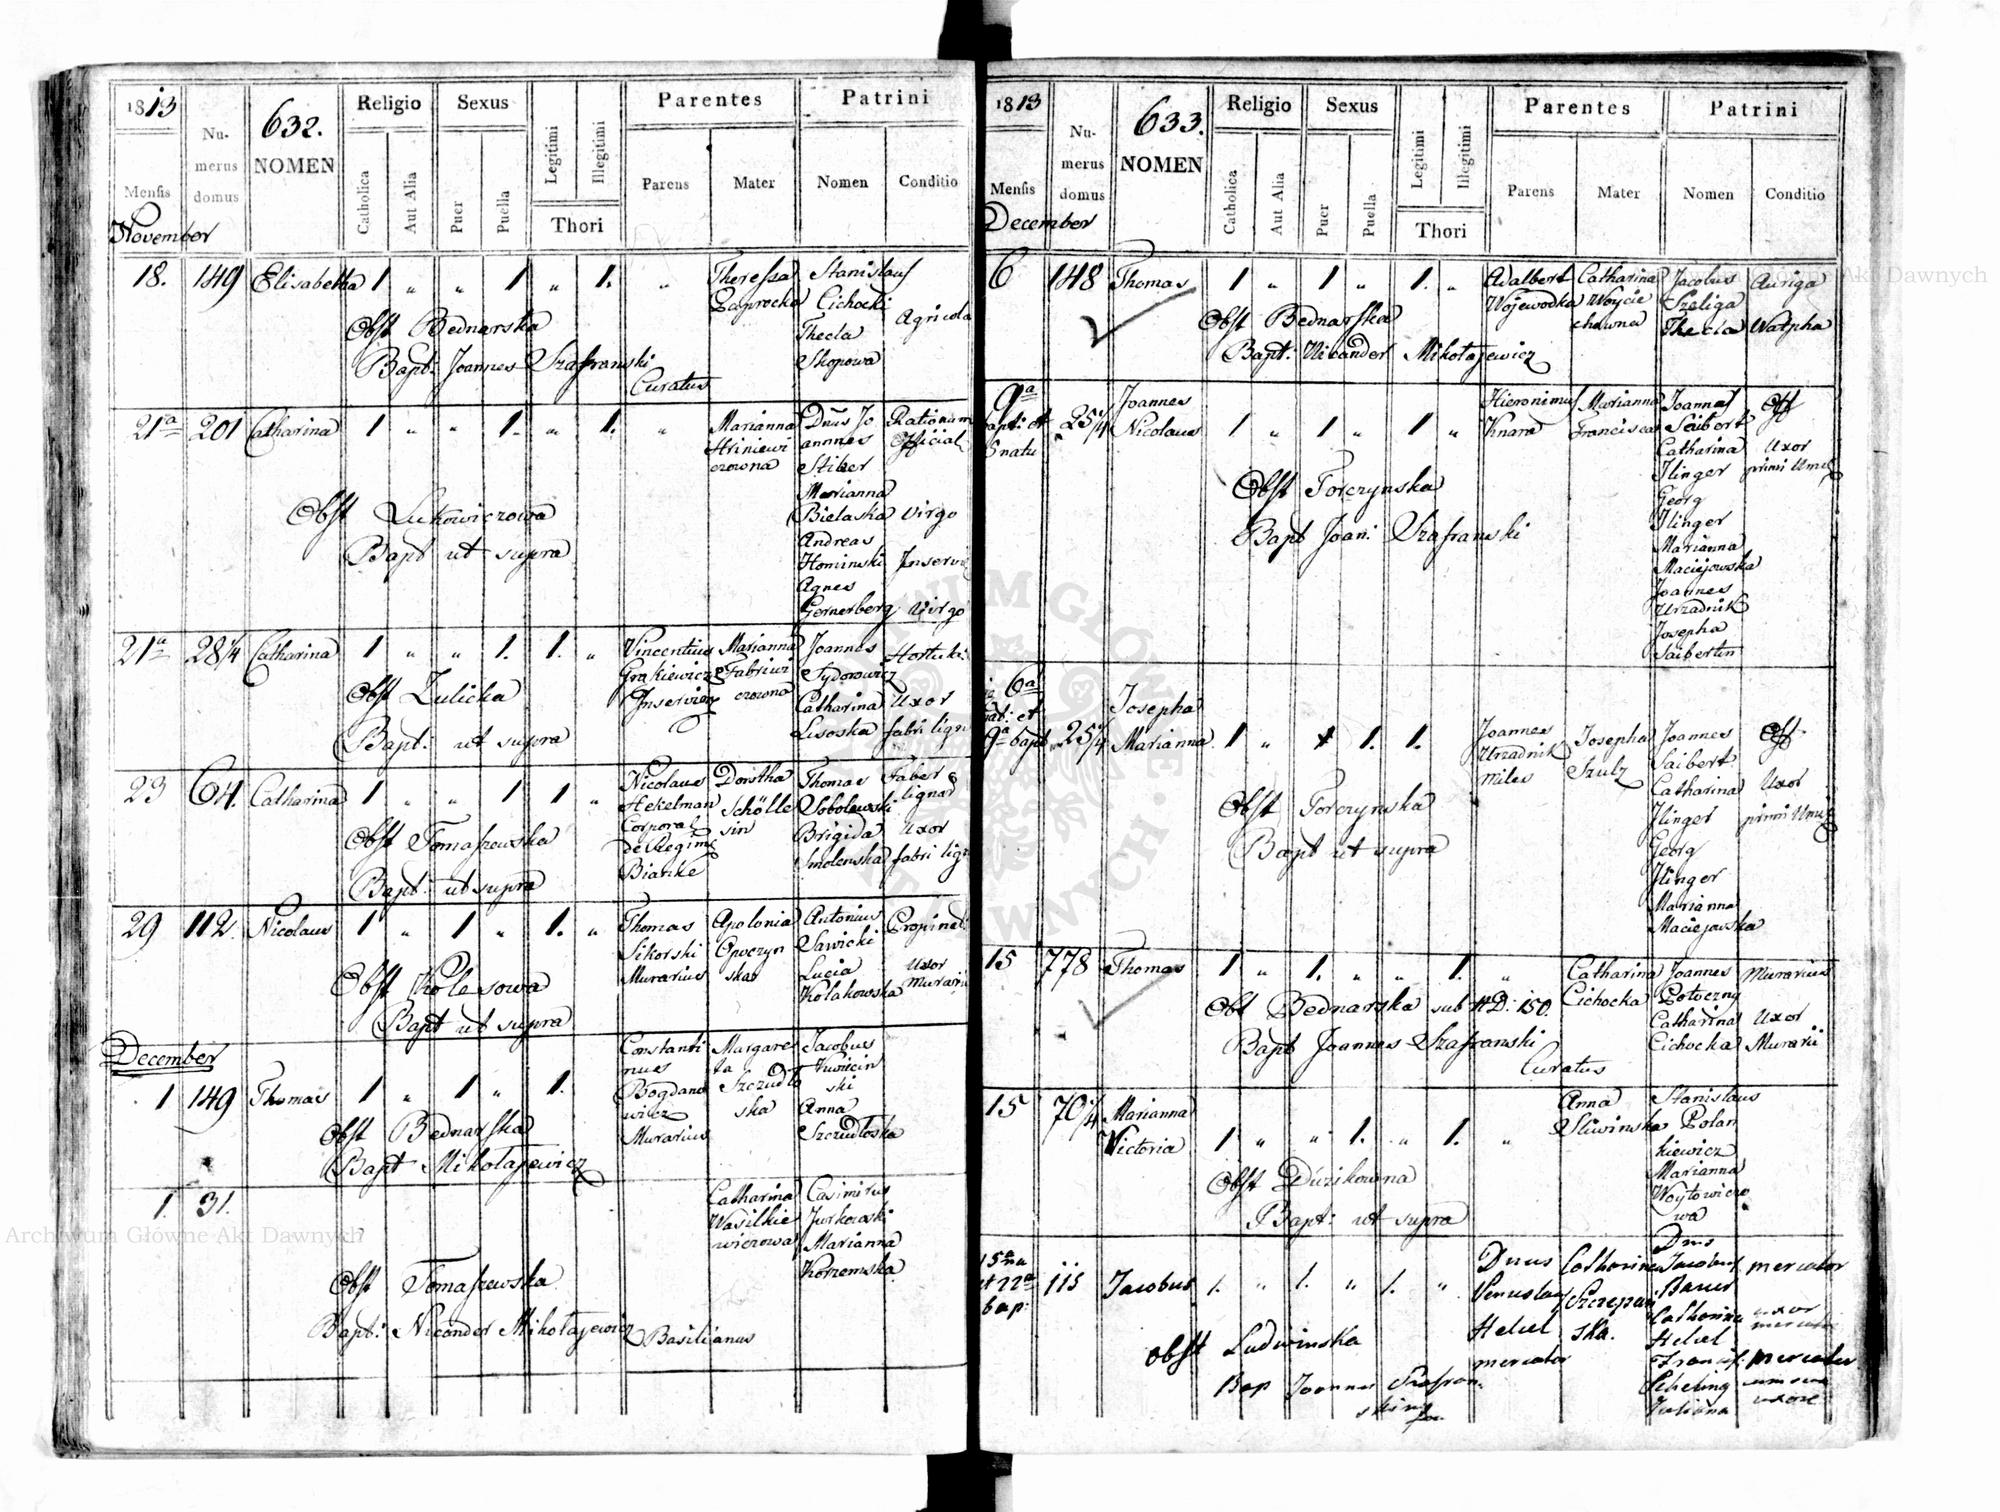 1813
632.
Numerus domus
NOMEN
Religio
Sexus
Parentes
Patrini
Mensis
Catholica
Aut Alia
Puer
Puella
Legitimi
Illegitimi
Thori
Parens
Mater
Nomen
Conditio
November
18. 149 Elisabetha 1 " " 1 " 1. " Theressa Stanislaus
Zaprocka Cichocki Agricola
Obst Bednarska Thecla
Bapt: Joannes Szafranski Skopowa
Curatus
21a 201 Catharina 1 " " 1. " 1. " Marianna Dnus Jo Rationum
Hriniewi annnes Official
czowna Stiber
Marianna
Obst Lukowiczowa Bielaska Virgo
Bapt ut supra Andreas
Hominski Inservi
Agnes
Gernerberg Virgo
21a 28/4 Catharina 1 " " 1. 1. " Vincentius Marianna Joannes
Grakiewicz Fabriwi Sydorowicz
Obst Zulicka Inserviens czowna Catharina Uxor
Bapt: ut supra Lisoska fabri lign
23 64. Catharina 1 " " 1 1 " Nicolaus Dorotha Thomas Faber
Hekelman Schölle Sobolewski lignar
Obst Tomaszewska Corporal sin Brigida Uxor
de Regim Smolenska fabri lign
Bapt: ut supra Bianke
29 112. Nicolaus 1 " 1 " 1. " Thomas Apolonia Antonius Propinat
Sikorski Opoczyn Sawicki
Obst Kolesowa Murarius ska Lucia Uxor
Bapt ut supra Kolakowska Murarii
December
1 149 Thomas 1 " 1 " 1. Constanti Margare Jacobus
nus ta Kwiecin
Bogdano Szczudlo ski
Obst Bednarska wicz ska Anna
Bapt Mikołajewicz Murarius Szczudłoska
1. 31. Catharina Casimirus
Wasilkie Jurkowski
wiczowa Marianna
Obst Tomaszewska Korzemska
Bapt: Nicander Mikołajewicz Basilianus
1813
633.
Numerus domus
NOMEN
Religio
Sexus
Parentes
Patrini
Mensis
Catholica
Aut Alia
Puer
Puella
Legitimi
Illegitimi
Thori
Parens
Mater
Nomen
Conditio
December
6 148 Thomas 1 " 1 " 1. " Adalbert Catharina Jacobus Auriga
Wojewodka Woycie Szeliga
Obst Bednarska chowna Thecla Watpha
Bapt: Nicander Mikołajewicz
9a Joannes Hieronimus Marianna Joannes Off
bapt: et 25/4 Nicolaus 1 " 1 " 1 " Knara Francisca Saibert
6 natu Catharina Uxor
Ilinger primi
Obst Torczynska Georg
Bapt Joan: Szafranski Ilinger
Marianna
Maciejowska
Joannes
Urzadnik
Josepha
Saibertin
6a
nat: et Josepha
9a bapt 25/4 Marianna 1 " 1. 1. Joannes Josepha Joannes Off
Urzadnik Szulz Saibert
miles Catharina Uxor
Obst Torczynska Ilinger primi
Bapt ut supra Georg
Ilinger
Marianna
Maciejowska
15 778 Thomas 1 " 1. " " 1. " Catharina Joannes Murarius
Cichocka Potoczny
Obst Bednarska sub ND: 150. Catharina Uxor
Bapt Joannes Szafranski Cichocka Murarii
Curatus
15 70/4 Marianna Anna Stanislaus
Victoria 1 " " 1. " 1. " Sliwinska Polan
kiewicz
Obst Duzikowna Marianna
Bapt: ut supra Woytowiczo
wa
15a na Dnus Catharina Dnus
et 22a 115 Jacobus 1. " 1. " 1. " Venceslaus Szczepan Jacobus mercator
bap: Helcel ska. Bauer
mercator Catharina uxor
Obst Ludwinska Helcel
Bap Joannes Szafran Francis: mercator
ski Scheling cum sua
Juliana uxore
Archiwum Główne Akt Dawnych
Archiwum Główne Akt Dawnych
ARCHIWUM GŁÓWNE AKT DAWNYCH